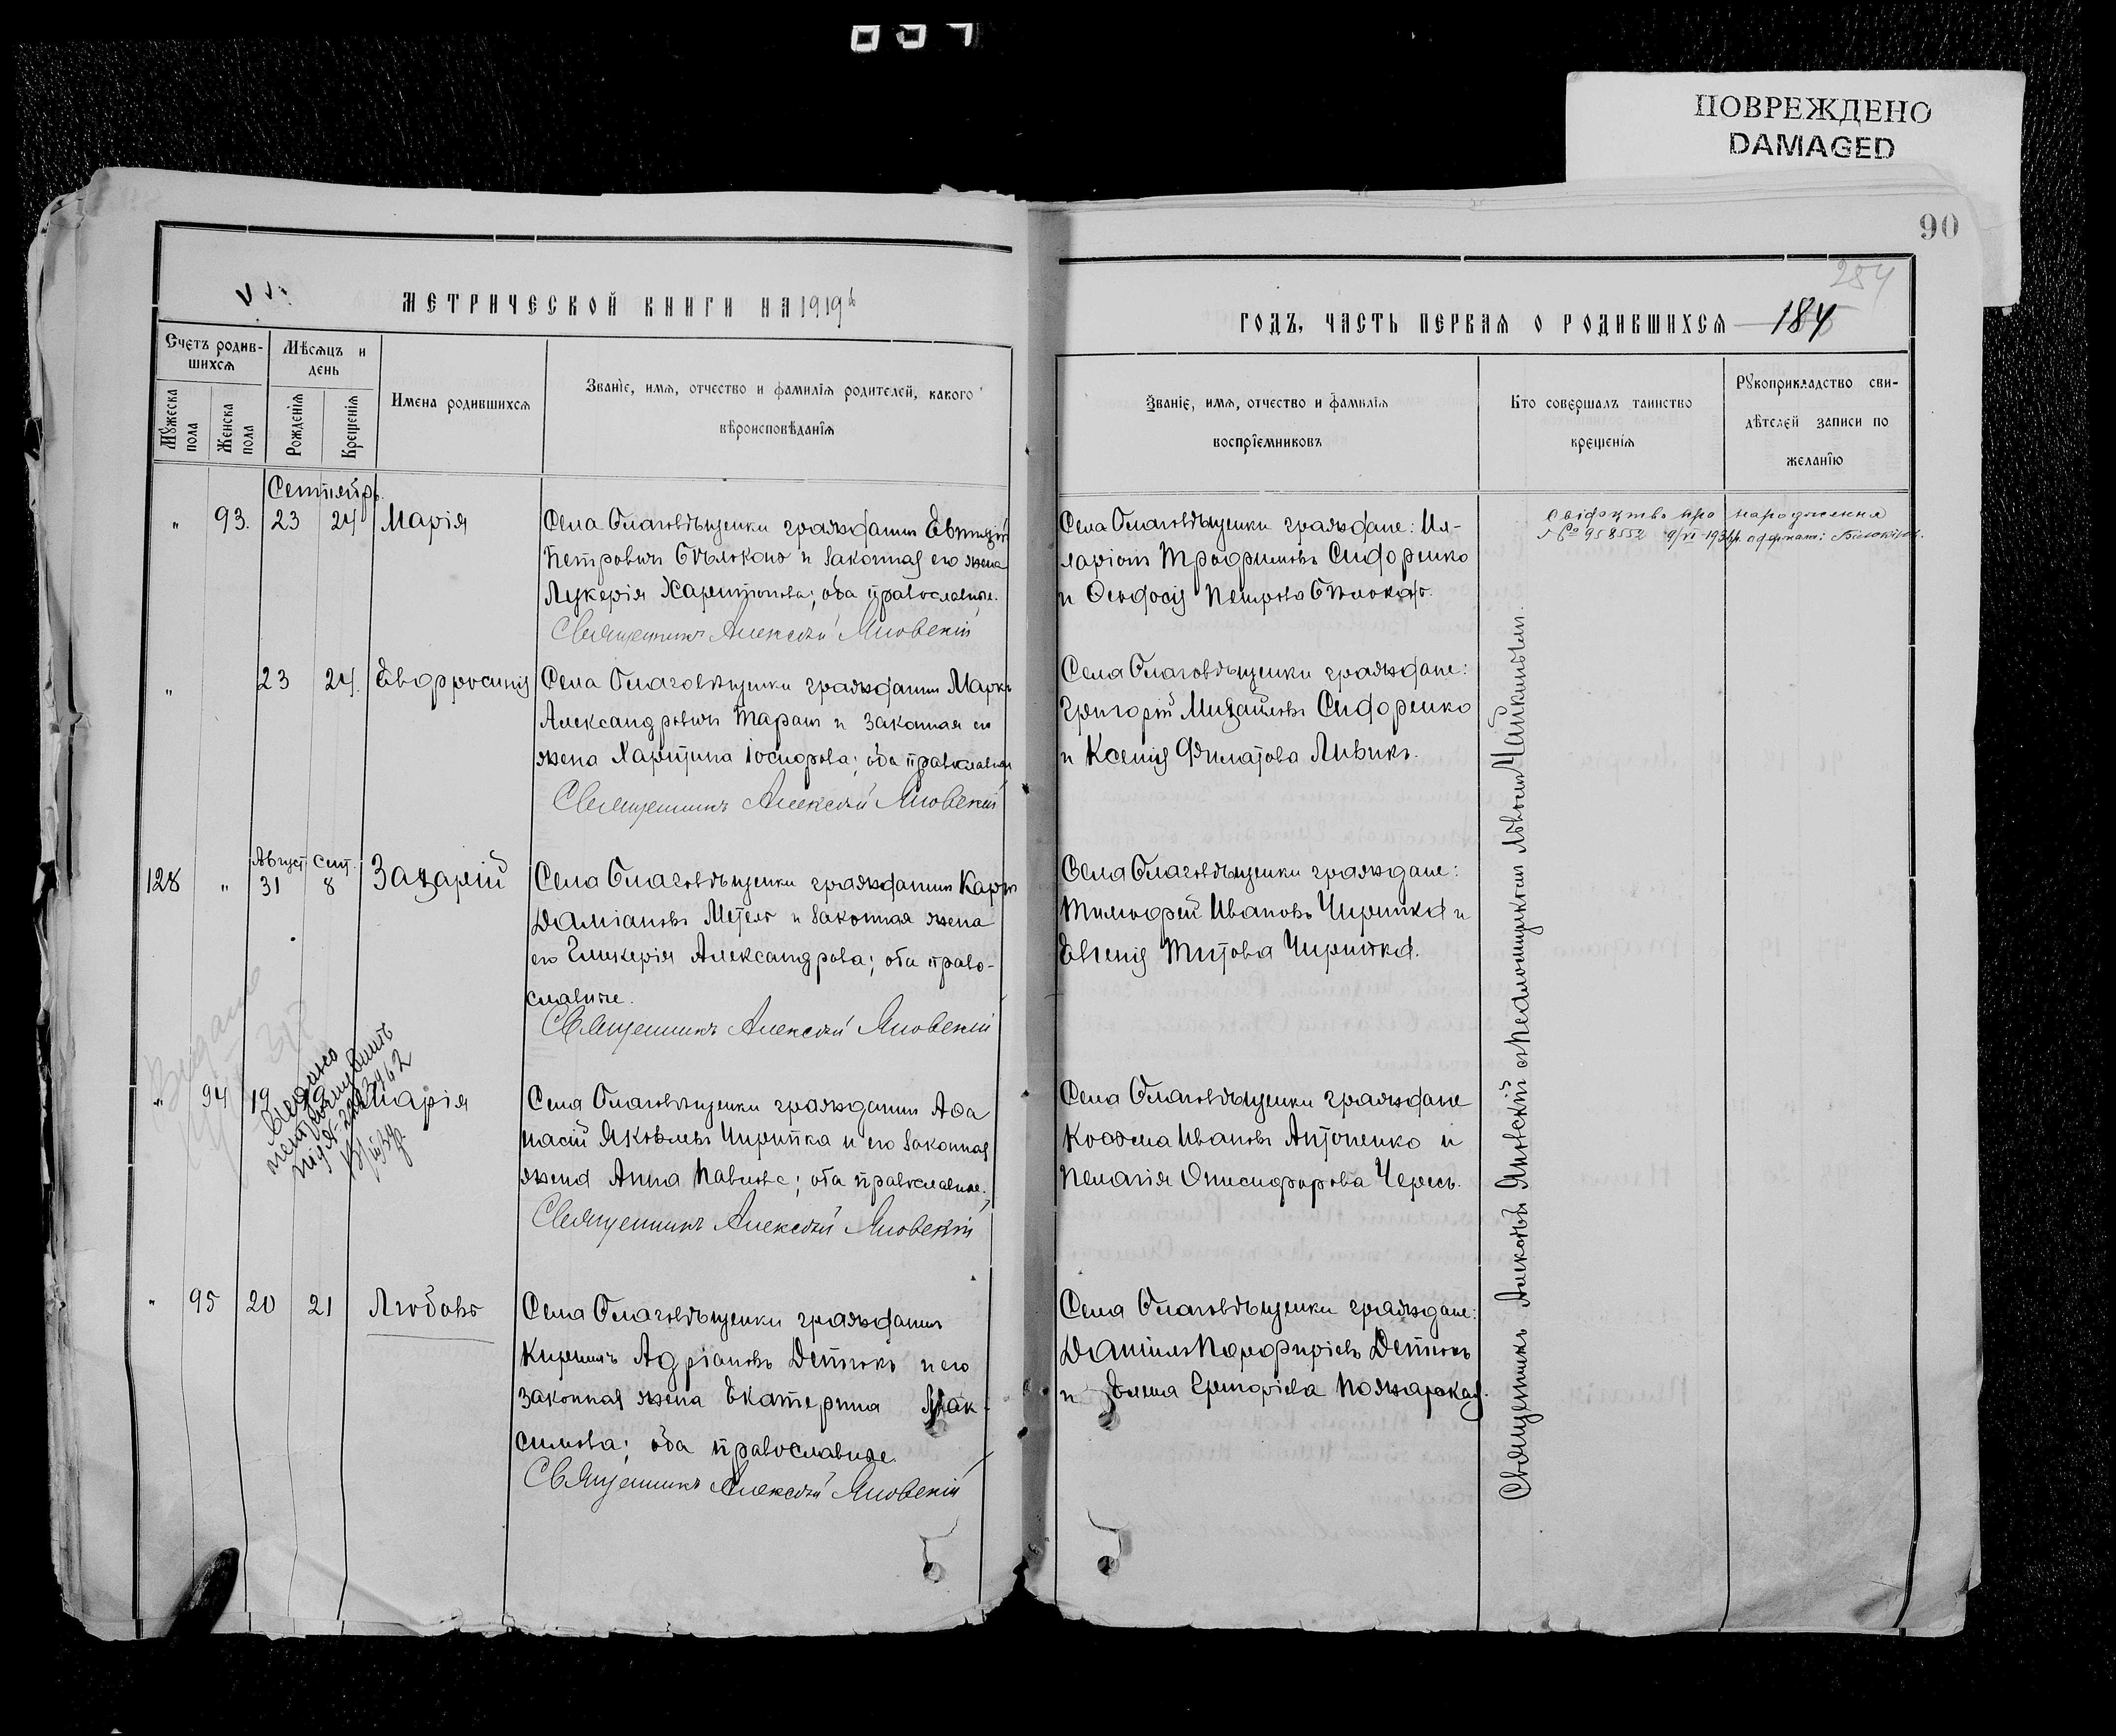 ПОВРЕЖДЕНО
DAMAGED
90
254
МЕТРИЧЕСКОЙ КНИГИ НА 1919
ГОДЪ, ЧАСТЬ ПЕРВАЯ О РОДИВШИХСЯ 184
Счетъ родив-
шихся
Мужеска пола
Женска пола
Мѣсяцъ и
день
Рожденія
Крещенія
Имена родившихся
Званіе, имя, отчество и фамилія родителей, какого
вѣроисповѣданія
Званіе, имя, отчество и фамилія
воспріемниковъ
Кто совершалъ таинство
крещенія
Рукоприкладство сви-
дѣтелей записи по
желанію
Сентябрь
" 93. 23 24 Марія
Села Благовѣщенки гражданин
Петровичъ Бѣлоконь и законная его жена
Лукерія Харитонова; оба православные.
Священникъ Алексѣй Яновскій
Села Благовѣщенки граждане: Ил-
ларіонъ Трофимовъ Сидоренко
и Ѳеодосія Петрова
Свідоцтво про народження
958552 9/VI-193
" 23 24. Евфросинія
Села Благовѣщенки гражданинъ Маркъ
Александровичъ Таран и законная его
жена Харитина Іосифова; оба православные
Священникъ Алексѣй Яновскій
Села Благовѣщенки граждане:
Григорій Михайловъ Сидоренко
и Ксенія Филатова Ливикъ.
Август Сент.
128 " 31 8 Захарій
Села Благовѣщенки гражданинъ Карпъ
Даміановъ Метель и законная жена
его Гликерія Александрова; оба право-
славные.
Священникъ Алексѣй Яновскій
Села Благовѣщенки граждане:
Тимофей Ивановъ Чиритка и
Евгенія Титова Чиритка.
" 94 19 Марія
Видано
Села Благовѣщенки гражданинъ Аѳа
насій Яковлевъ Чиритка и его законная
жена Анна Павлова; оба православные.
Священникъ Алексѣй Яновскій
Села Благовѣщенки граждане
Косьма Ивановъ Антоненко и
Пелагія Онисифорова Чересъ.
" 95 20 21 Любовь
Села Благовѣщенки гражданинъ
Кириллъ Адріановъ и его
законная жена Екатерина Мак-
симова; оба православные.
Священникъ Алексѣй Яновскій
Села Благовѣщенки граждане:
Даніилъ Порфиріевъ
и Елена Григоріева Пожарская.
Священникъ Алексѣй Яновскій съ псаломщикомъ Чайкинымъ